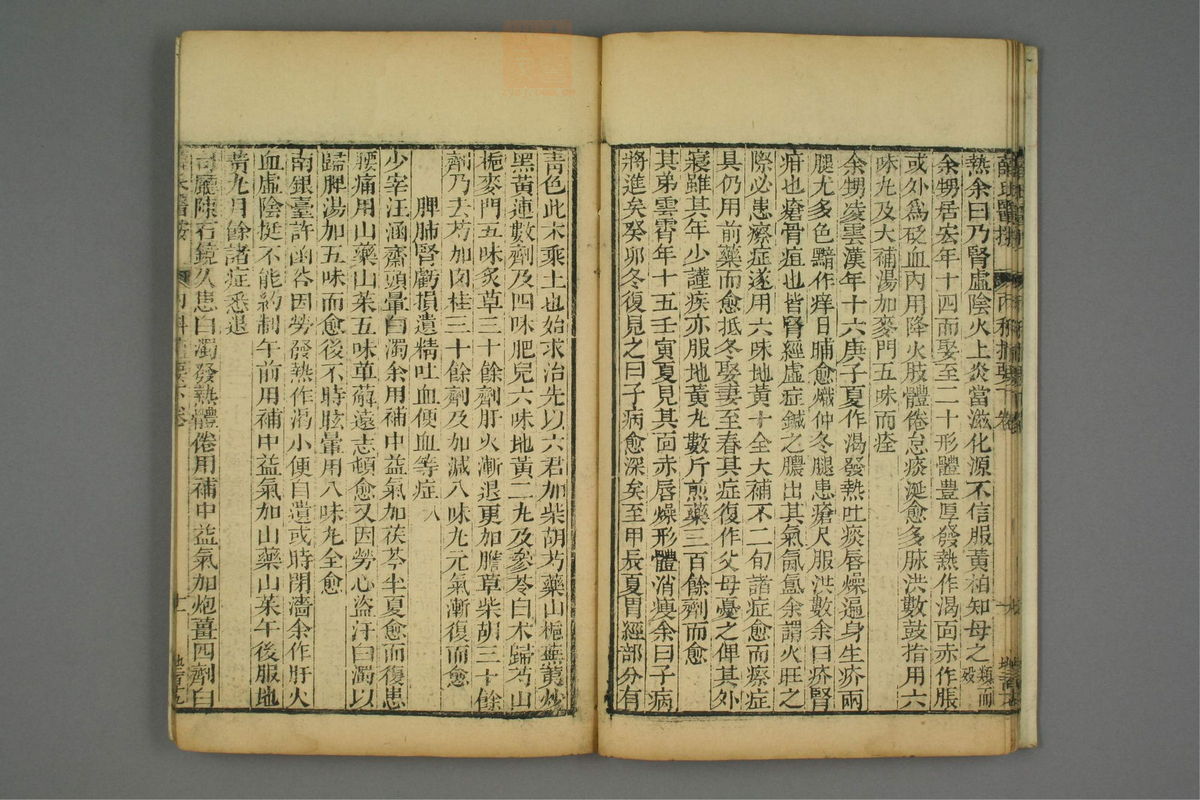 熱余曰乃腎虛陰火上炎當滋化源不信服黃柏知母之類而歿
余甥居宏年十四而娶至二十形體豐厚發熱作渴面赤作脹
或外為砭血內用降火肢體倦怠痰涎愈多脉洪數鼓指用六
味丸及大補湯加麥門五味而痊
余甥凌雲漢年十六庚子夏作渴發熱吐痰唇燥遍身生疥兩
腿尤多色黯作痒日晡愈熾仲冬腿患瘡尺脉洪數余曰疥腎
疳也瘡骨疽也皆腎經虛症鍼之膿出其氣氤氳余謂火旺之
際必患瘵症遂用六味地黃十全大補不二旬諸症愈而瘵症
具仍用前藥而愈抵冬娶妻至春其症復作父母憂之俾其外
寢雖其年少謹疾亦服地黃丸數斤煎藥三百餘劑而愈
其弟雲霄年十五壬寅夏見其面赤唇燥形體消瘦余曰子病
將進矣癸卯冬復見之曰子病愈深矣至甲辰夏胃經部分有
青色此木乘土也始求治先以六君加柴胡芍藥山梔蕪荑炒
黑黃連數劑及四味肥兒六味地黃二丸及參苓白朮歸芍山
梔麥門五味炙草三十餘劑肝火漸退更加膽草柴胡三十餘
劑乃去芍加肉桂三十餘劑及加減八味丸元氣漸復而愈
脾肺腎虧損遺精吐血便血等症八
少宰汪涵齋頭暈白濁余用補中益氣加茯苓半夏愈而復患
腰痛用山藥山茱五味萆薢遠志頓愈又因勞心盜汗白濁以
歸脾湯加五味而愈後不時眩暈用八味丸全愈
南銀臺許函谷因勞發熱作渴小便自遺或時閉濇余作肝火
血虛陰挺不能約制午前用補中益氣加山藥山茱午後服地
黃丸月餘諸症悉退
司廳陳石鏡久患白濁發熱體倦用補中益氣加炮薑四劑白